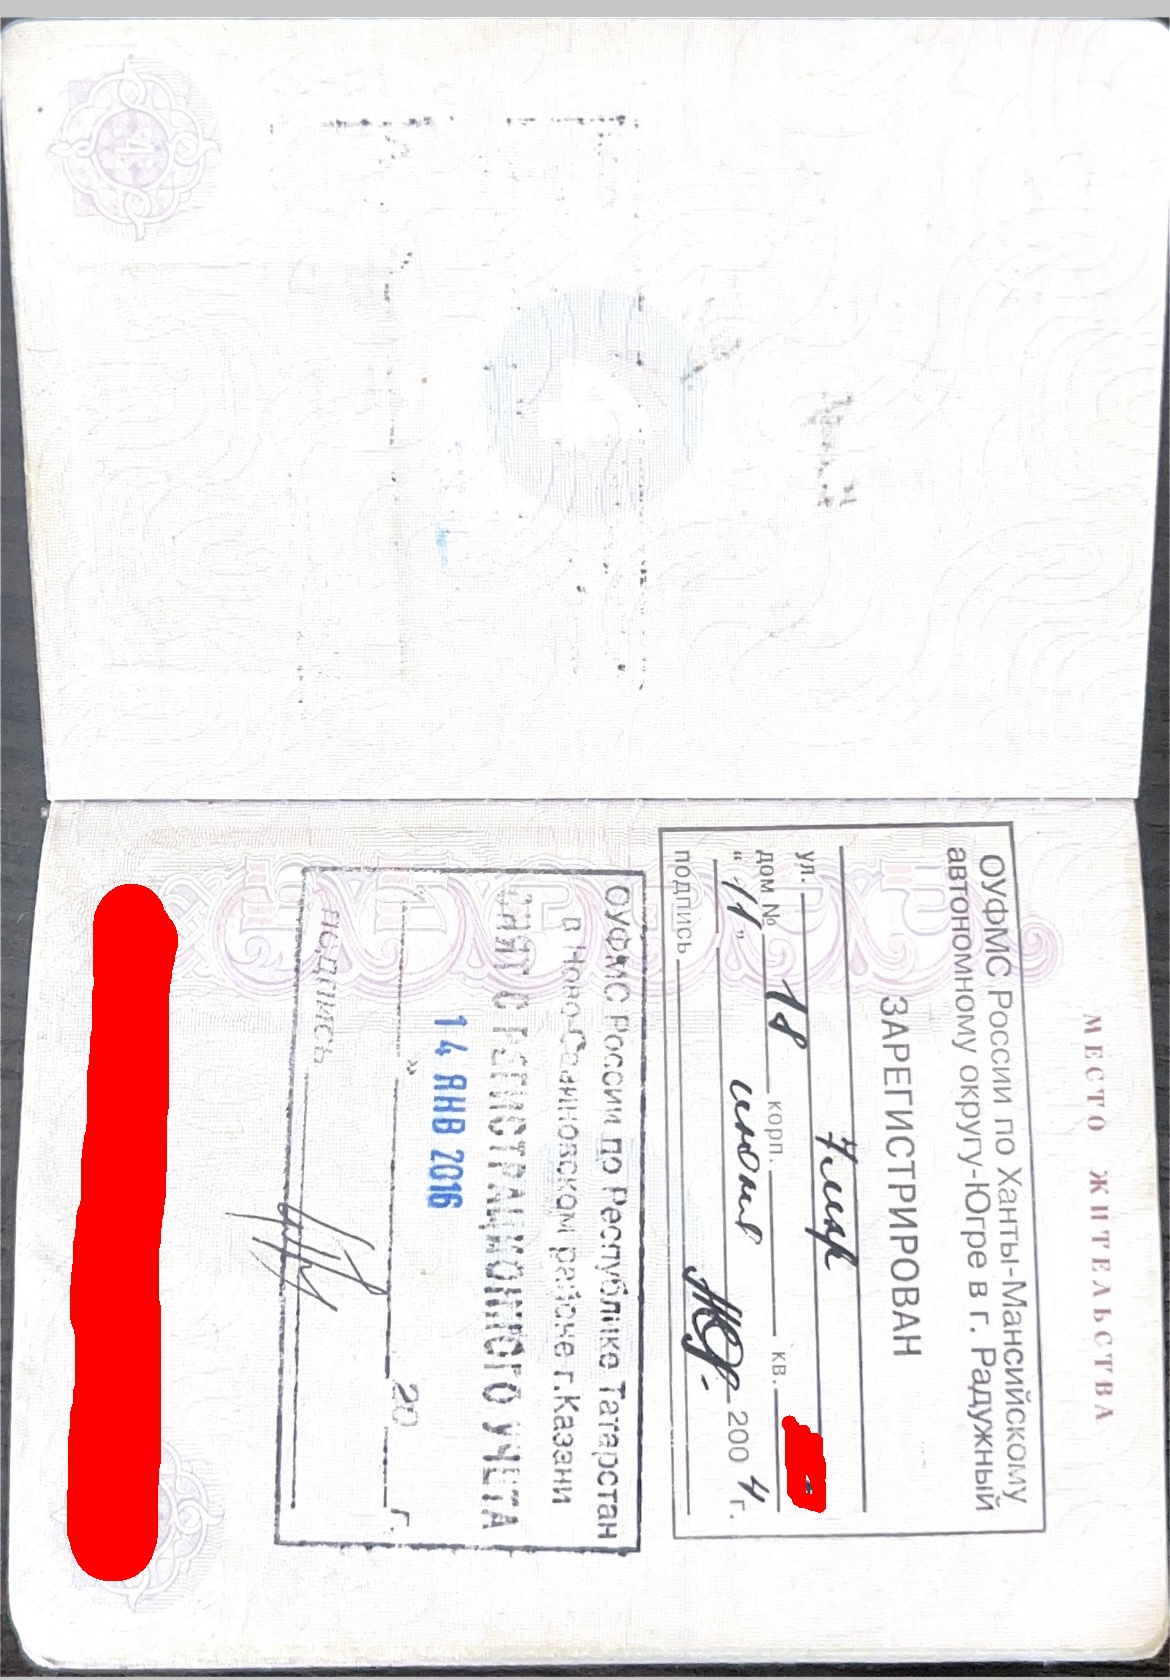 МЕСТО ЖИТЕЛЬСТВА
ОУФМС России по Ханты-Мансийскому
автономному округу-Югре в г. Радужный
ЗАРЕГИСТРИРОВАН
ул.
дом № 18 корп. кв.
"11" июня 2004 г.
подпись
ОУФМС России по Республике Татарстан
в Ново-Савиновском районе г.Казани
СНЯТ С РЕГИСТРАЦИОННОГО УЧЕТА
14 ЯНВ 2016
» 20 г.
подпись